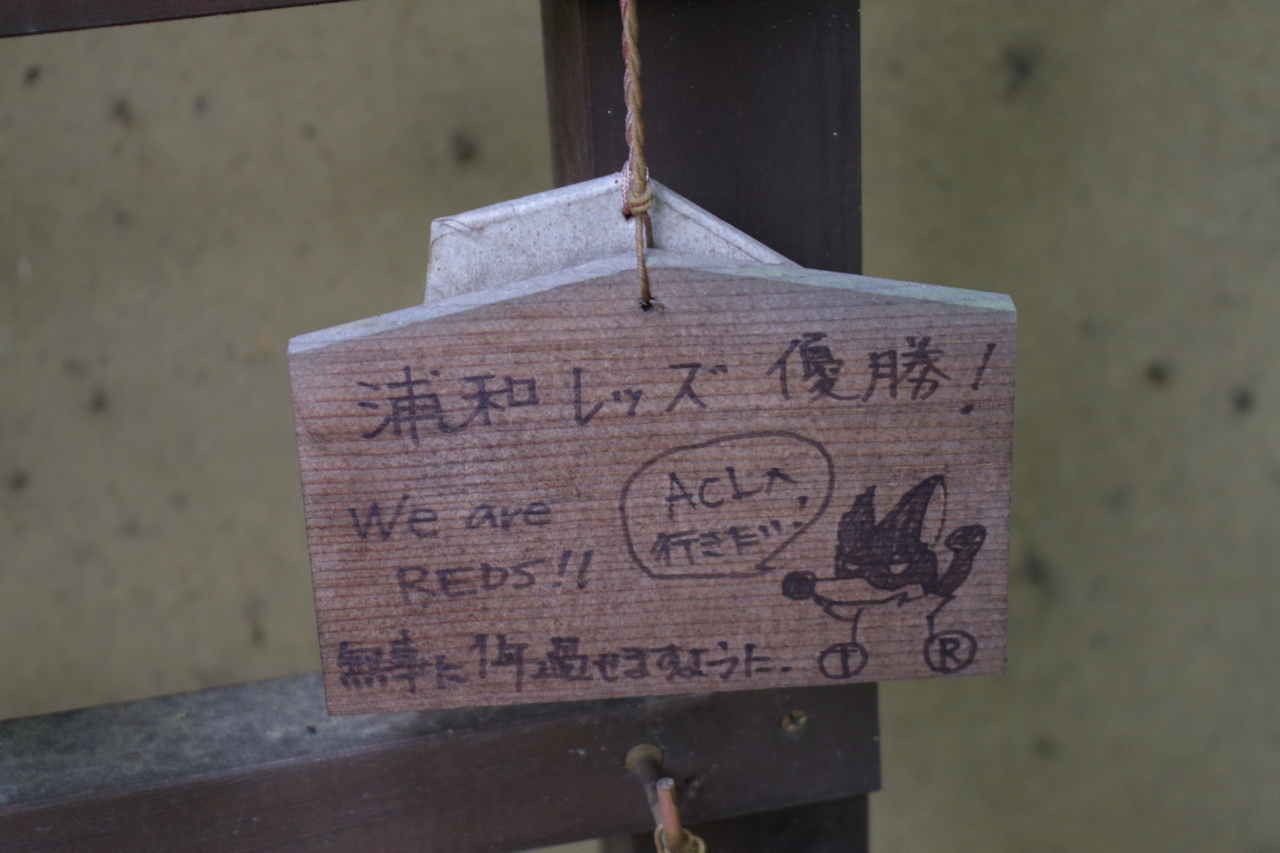 浦和レッズ 優勝!
We are
REDS!!
ACLへ
行きだ
無事に1年過せますように.
I
R